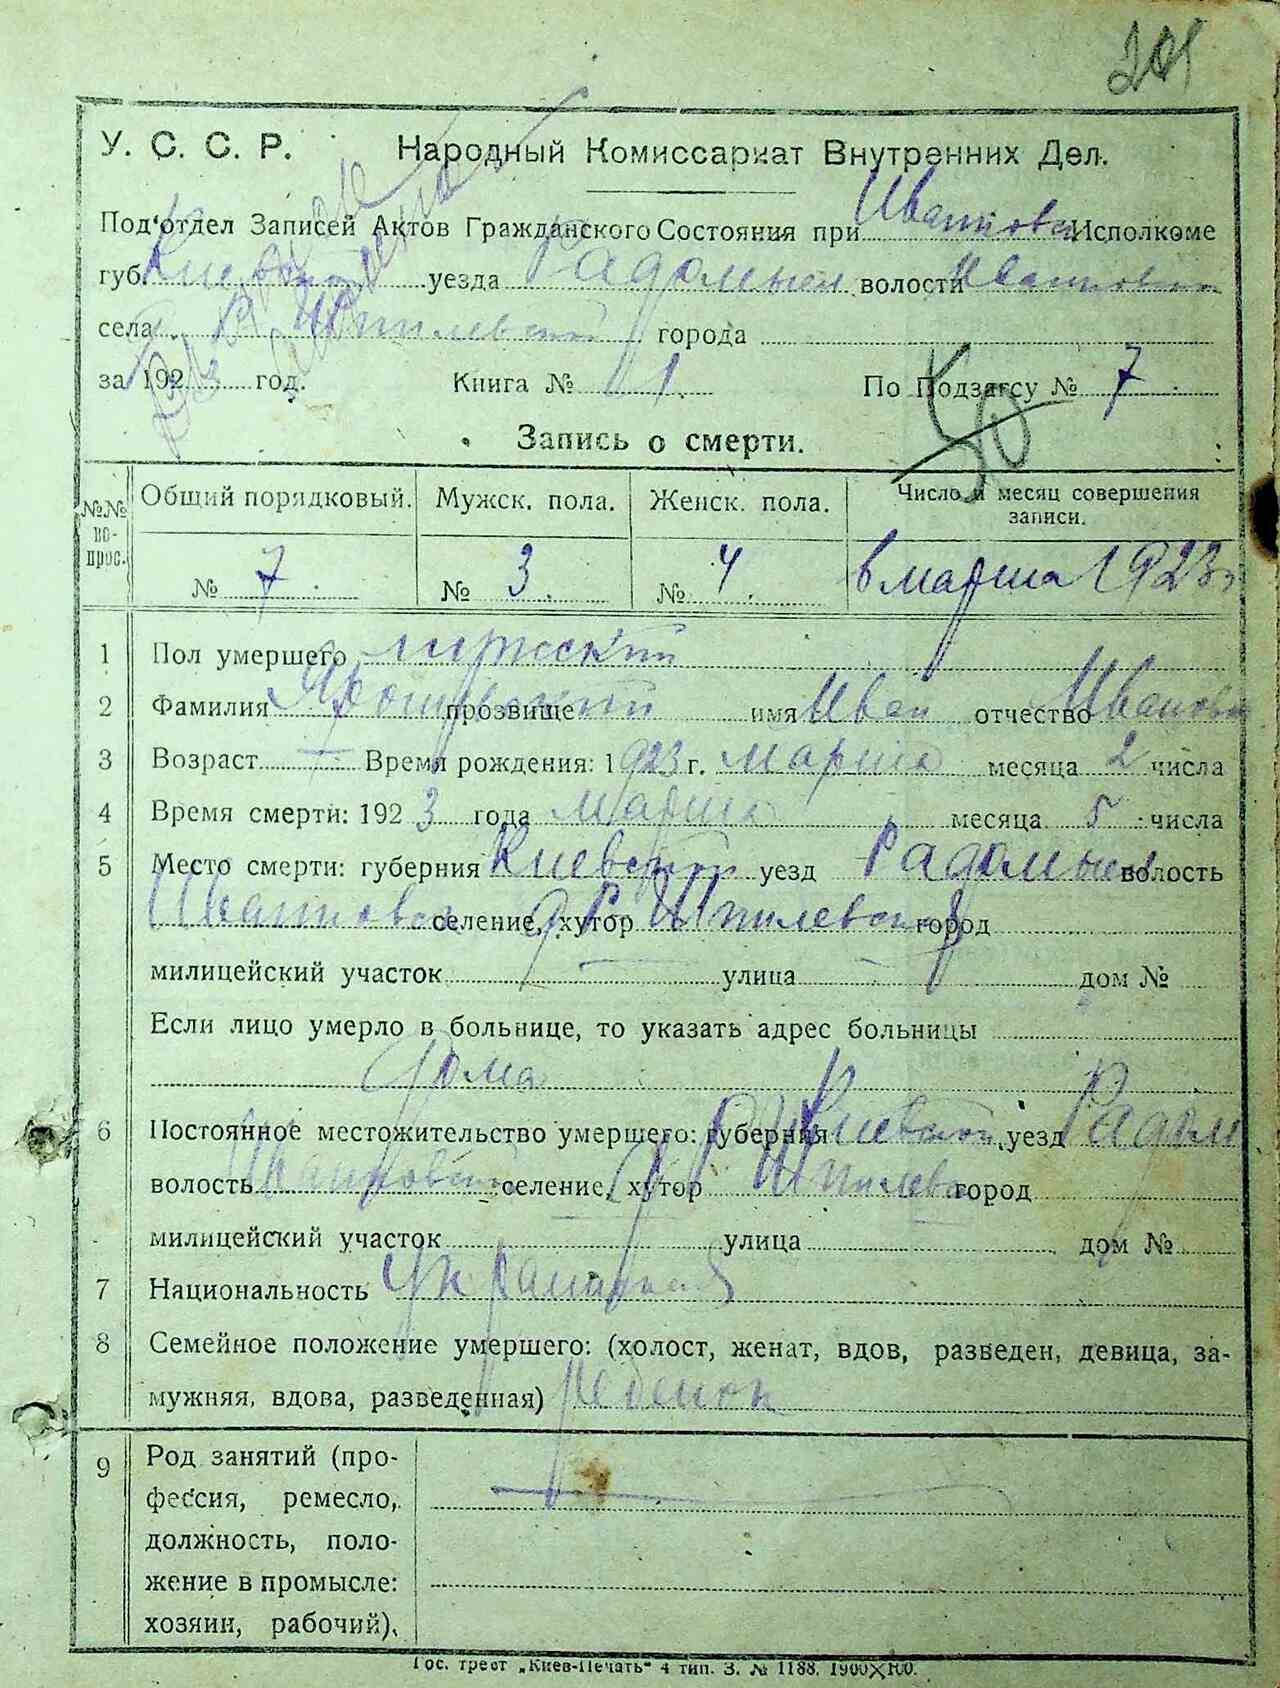 201
У. С. С. Р. Народный Комиссариат Внутренних Дел.
Под'отдел Записей Актов Гражданского Состояния при Исполкоме
губ. Киевской уезда Радомысл волости
села Р. Шпилевской города
за 1923 год. Книга № 1 По Подзагсу № 7
50
Запись о смерти.
№№ вопрос. Общий порядковый. Мужск. пола. Женск. пола. Число и месяц совершения записи.
№ 7 № 3 № 4 6 марта 1923 г
1 Пол умершего мужский
2 Фамилия прозвище имя Иван отчество Иванов
3 Возраст — Время рождения: 1923 г. марта месяца 2 числа
4 Время смерти: 1923 года марта месяца 5 числа
5 Место смерти: губерния Киевской уезд Радомысл волость
селение, хутор Р Шпилевской город
милицейский участок — улица — дом №
Если лицо умерло в больнице, то указать адрес больницы
Дома
6 Постоянное местожительство умершего: губерния Киевской уезд Радом
волость селение, хутор Р Шпилевс город
милицейский участок улица дом №
7 Национальность
8 Семейное положение умершего: (холост, женат, вдов, разведен, девица, за-
мужняя, вдова, разведенная) ребенок
9 Род занятий (про-
фессия, ремесло, —
должность, поло-
жение в промысле:
хозяин, рабочий).
Гос. трест „Киев-Печать“ 4 тип. З. № 1188. 1900×100.